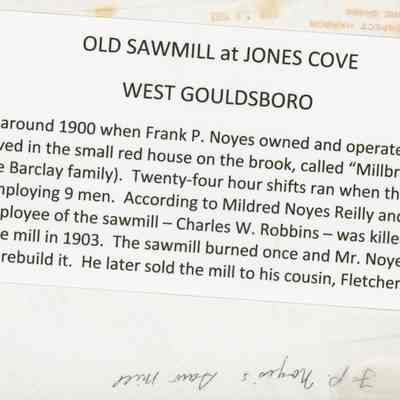 OLD SAWMILL at JONES COVE
WEST GOULDSBORO
around 1900 when Frank P. Noyes owned and operate
ved in the small red house on the brook, called "Millbr
e Barclay family). Twenty-four hour shifts ran when th
mploying 9 men. According to Mildred Noyes Reilly and
ployee of the sawmill – Charles W. Robbins – was kille
e mill in 1903. The sawmill burned once and Mr. Noye
rebuild it. He later sold the mill to his cousin, Fletcher
F. P. Noyes's Saw Mill